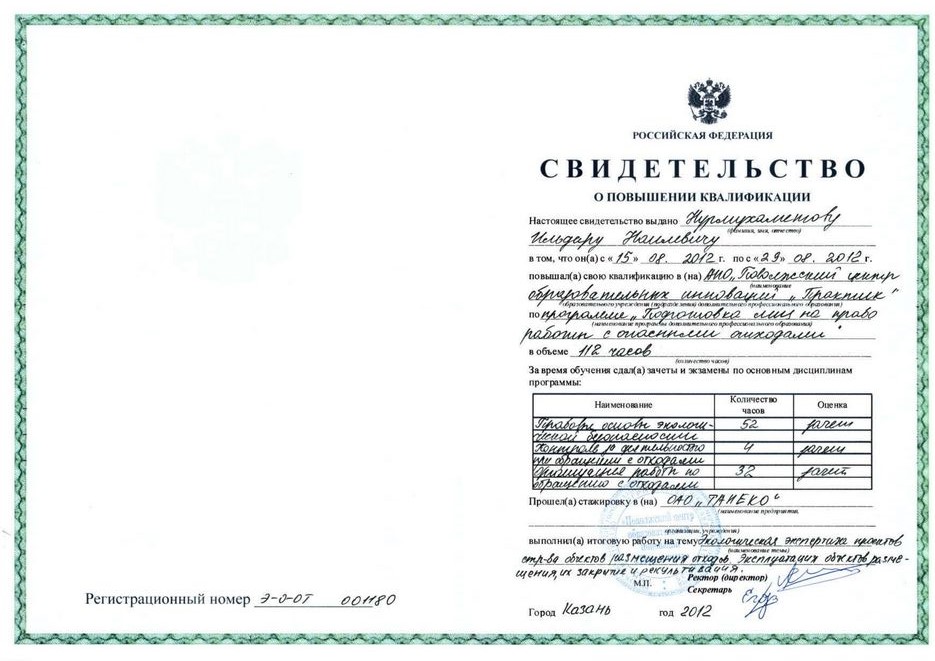 РОССИЙСКАЯ ФЕДЕРАЦИЯ
СВИДЕТЕЛЬСТВО
О ПОВЫШЕНИИ КВАЛИФИКАЦИИ
Настоящее свидетельство выдано Нурмухаметову
(фамилия, имя, отчество)
Ильдару Наилевичу
в том, что он(а) с «15» 08. 2012 г. по с «29» 08. 2012 г.
повышал(а) свою квалификацию в (на) АНО „Поволжский центр
(наименование
образовательных инноваций „Практик“
образовательного учреждения (подразделения) дополнительного профессионального образования)
по программе „Подготовка лиц на право
(наименование программы дополнительного профессионального образования)
работы с опасными отходами“
в объеме 112 часов
(количество часов)
За время обучения сдал(а) зачеты и экзамены по основным дисциплинам
программы:
Наименование Количество часов Оценка
Правовые основы экологи- 52 зачет
ческой безопасности
Контроль за деятельностью 4 зачет
при обращении с отходами
Организация работ по 32 зачет
обращению с отходами
Прошел(а) стажировку в (на) ОАО „ТАНЕКО“
(наименование предприятия,
организации, учреждения)
выполнил(а) итоговую работу на тему Экологическая экспертиза проектов
(наименование темы)
стр-ва объектов размещения отходов. Эксплуатация объектов разме-
щения, их закрытие и рекультивация.
М.П. Ректор (директор)
Секретарь
Город Казань год 2012
Регистрационный номер Э-О-ОТ 001180